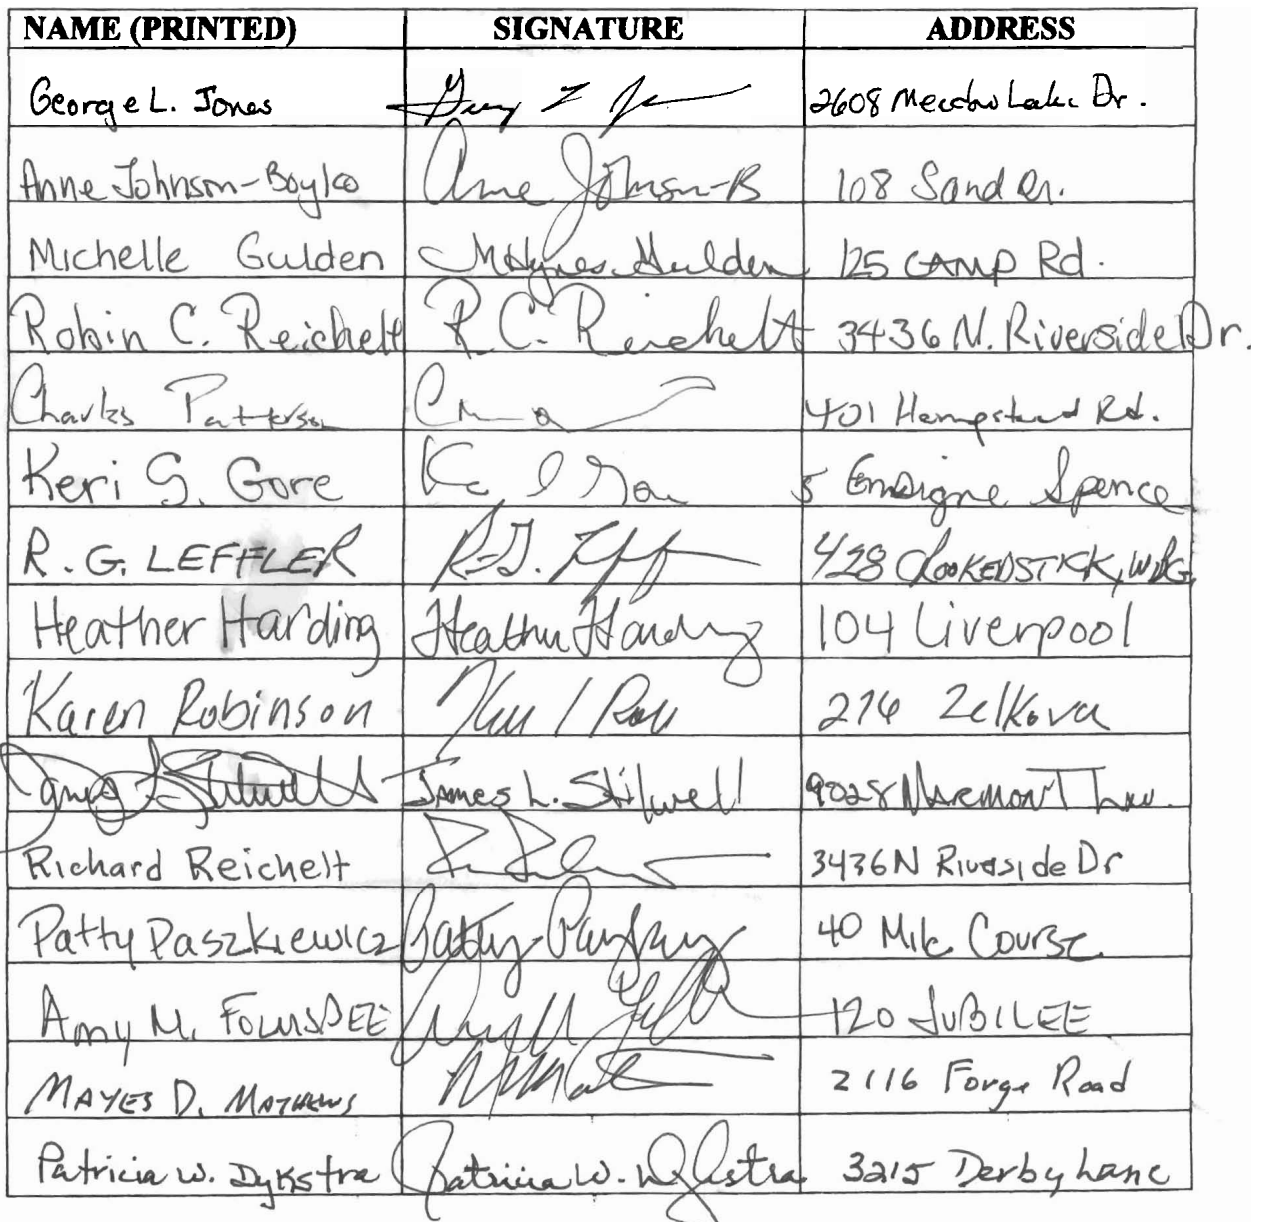 NAME (PRINTED) SIGNATURE ADDRESS
George L. Jones 2608 Meadow Lake Dr.
Anne Johnson-Boyko Anne Johnson-B 108 Sand Dr.
Michelle Gulden MHynes Gulden 125 CAMP Rd.
Robin C. Reichelt R. C. Reichelt 3436 N. Riverside Dr.
Charles Patterson 401 Hempstead Rd.
Keri S. Gore 5 Ensigne Spence
R. G. LEFFLER R.G. Leffler 428 CROOKEDSTICK, WBG
Heather Harding Heather Harding 104 Liverpool
Karen Robinson 276 Zelkova
James L Stilwell James L. Stilwell 9028 Marmont
Richard Reichelt 3436 N Riverside Dr
Patty Paszkiewicz Patty 40 Mile Course
Amy M. 120 JUBILEE
MAYES D. MATHEWS 2116 Forge Road
Patricia W. Dykstra Patricia W. Dykstra 3215 Derby Lane